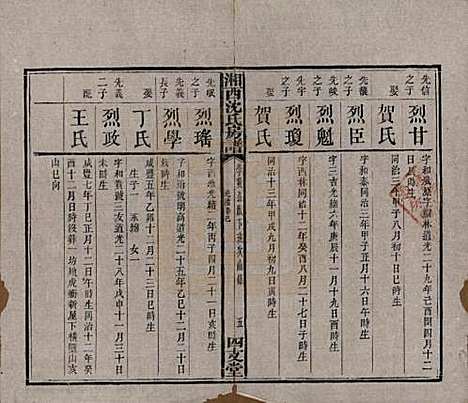 先信
之子
娶
烈甘
字和源字樹林道光二十九年己酉四月十二
日辰時生
賀氏
同治十三年甲子八月初三日亥時生
先穰
之子
烈臣
字和泰同治三年甲子五月十六日午時生
先畯
之子
烈魁
字吉甫光緒六年庚辰十一月十九日酉時生
先嗥
之子
烈瓊
字西林同治十二年癸酉六月初七日亥時生
娶
賀氏
同治十三年甲戌九月初九日寅時生
湘西沈氏房譜
五
四支堂
先珷
之子
烈瑤
字西池光緒二年丙子四月二十一日亥時生
先義
長子
烈學
字和興道光二十五年乙巳十二月二十日時生
娶
丁氏
咸豐五年乙卯十一月二十三日時生
子一 承緒 女一
先義
二子
烈政
字和賢號三友道光二十八年戊申十一月三十日
未時生
配
王氏
咸豐七年丁巳正月二十四日時生同治十二年癸
酉十二月二十日時歿葬一坊地虎衝新屋下橫山亥
山巳向